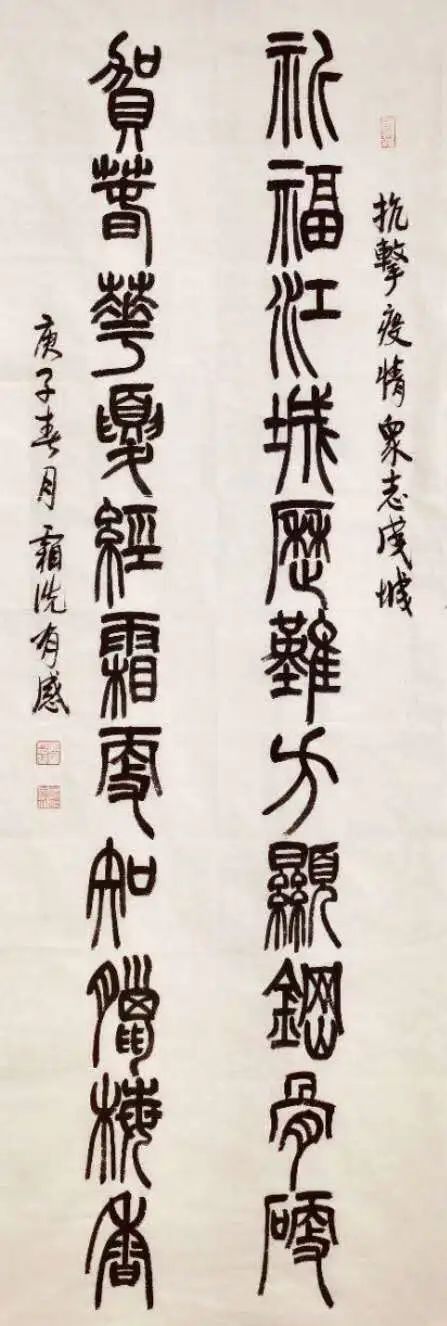 抗擊疫情眾志成城
祈福江城歷難方顯鋼骨硬
賀春華夏經霜更知臘梅香
庚子春月霜洗有感